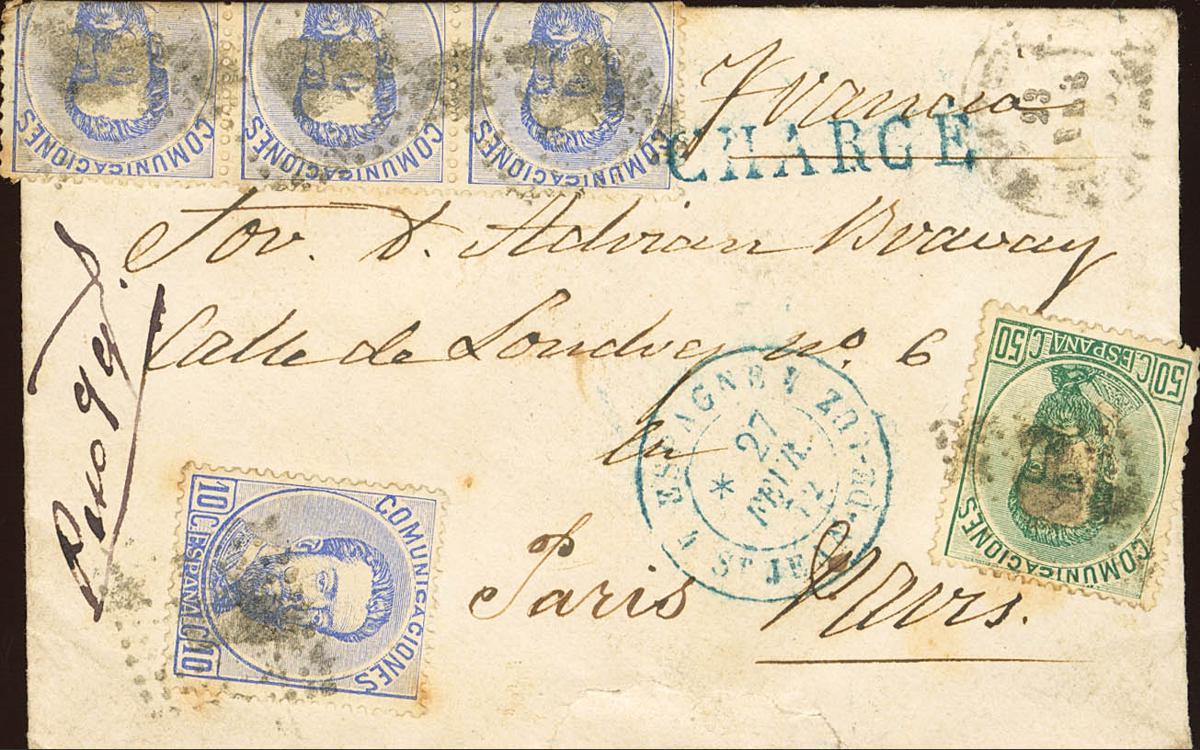 COMUNICACIONES
COMUNICACIONES
COMUNICACIONES
Francia
CHARGE
23
Sor. D. Adrian Bravay
Calle de Londres no. 6
en
Paris
ESPAGNE ST JEAN-DE-LUZ
27
FEVR.
72
*
COMUNICACIONES
10 C. ESPAÑA C. 10
COMUNICACIONES
50 C. ESPAÑA C. 50